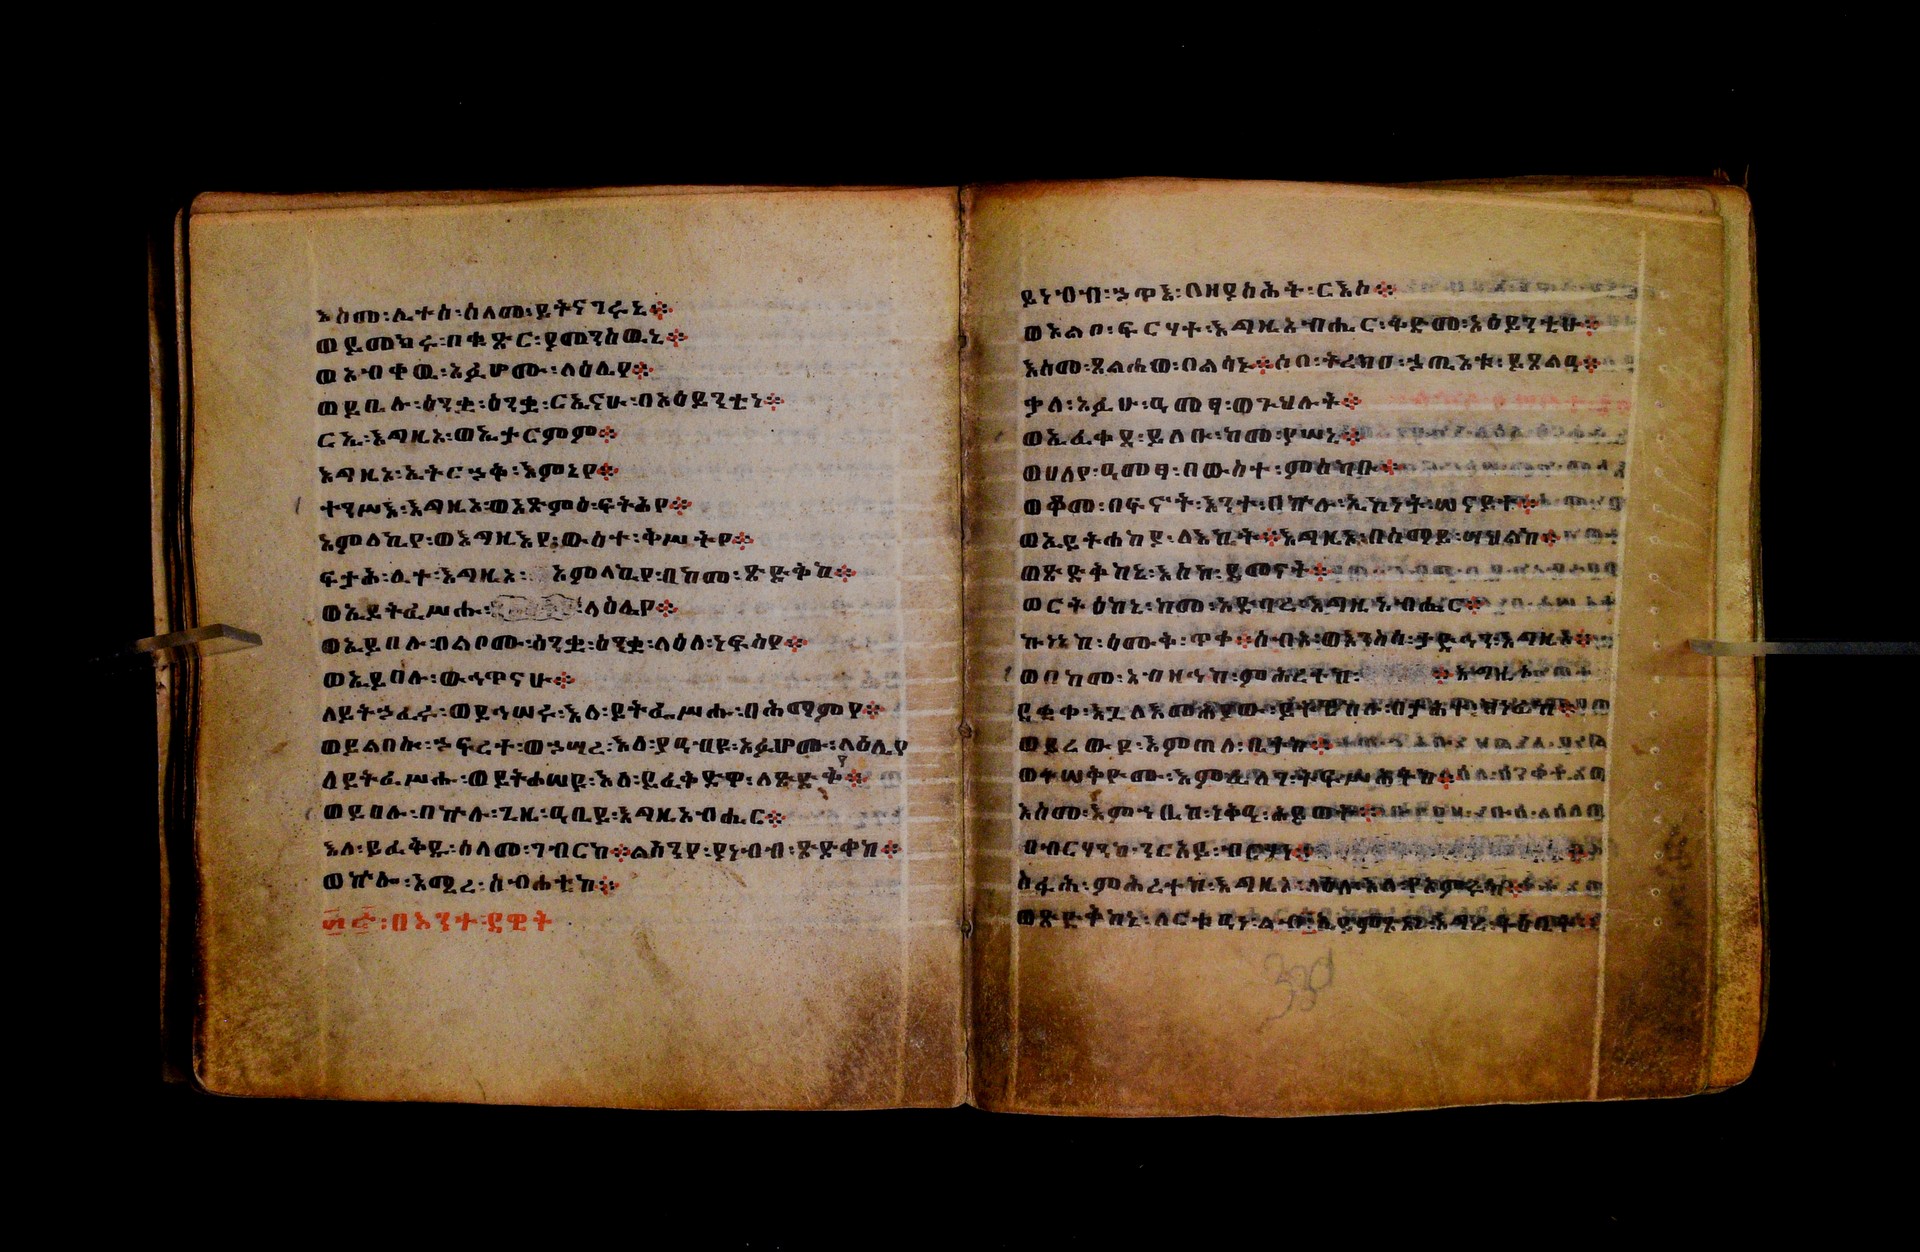 እስመ፡ሊተሰ፡ሰላመ፡ይትናገሩኒ።
ወይመክሩ፡በቍጽር፡ያመንስዉኒ።
ወአብቀዉ፡አፈሆሙ፡ላዕሌየ።
ወይቤሉ፡ዕንቋ፡ዕንቋ፡ርኢናሁ፡በአዕይንቲነ።
ርኢ፡እግዚኦ፡ወኢታርምም።
እግዚኦ፡ኢትርኀቅ፡እምኔየ።
ተንሥእ፡እግዚኦ፡ወአጽምዕ፡ፍትሕየ።
አምላኪየ፡ወእግዚእየ፡ውስተ፡ቅሥትየ።
ፍታሕ፡ሊተ፡እግዚኦ፡አምላኪየ፡በከመ፡ጽድቅከ።
ወኢይትፈሥሑ፡ላዕሌየ።
ወኢይበሉ፡በልቦሙ፡ዕንቋ፡ዕንቋ፡ለዕለ፡ነፍስየ።
ወኢይበሉ፡ውኅጥናሁ።
ለይትኀፈሩ፡ወይኅሠሩ፡እለ፡ይትፌሥሑ፡በሕማምየ።
ወይልበሱ፡ኀፍረተ፡ወኀሣረ፡እለ፡ያዓብዩ፡አፉሆሙ፡ላዕሌየ
ለይትፈሥሑ፡ወይትሐሠዩ፡እለ፡ይፈቅድዋ፡ለጽድቅየ።
ወይበሉ፡በኵሉ፡ጊዜ፡ዓቢይ፡እግዚአብሔር።
እለ፡ይፈቅዱ፡ሰላመ፡ገብርከ።ልሳንየ፡ያነብብ፡ጽድቀከ።
ወኵሎ፡አሚረ፡ስብሐቲከ።
፴፭፡በእንተ፡ዳዊት
ይነብብ፡ኃጥእ፡በዘያስሕት፡ርእሶ።
ወአልቦ፡ፍርሃተ፡እግዚአብሔር፡ቅድመ፡አዕይንቲሁ።
እስመ፡ጸልሐወ፡በልሳኑ።ሶበ፡ትረክቦ፡ኃጢአቱ፡ይጸልዓ።
ቃለ፡አፉሁ፡ዓመፃ፡ወጕሕሉት።
ወኢፈቀደ፡ይለቡ፡ከመ፡ያሠኒ።
ወሀለየ፡ዓመፃ፡በውስተ፡ምስካቡ።
ወቆመ፡በፍኖት፡እንተ፡በኵሉ፡ኢኮነት፡ሠናይተ።
ወኢይትሐከይ፡ለእኪት።እግዚኦ፡በሰማይ፡ሣህልከ።
ወጽድቅከኒ፡እስከ፡ደመናት።
ወርትዕከኒ፡ከመ፡አድባረ፡እግዚአብሔር።
ኵነኔከ፡ዕሙቅ፡ጥቀ።ሰብአ፡ወእንስሳ፡ታድኅን፡እግዚኦ።
ወበከመ፡አብዛኅከ፡ምሕረተከ፡
ወይረውዩ፡እምጠለ፡ቤትከ።
እስመ፡እምኀቤከ፡ነቅዓ፡ሕይወት።
በብርሃንከ፡ንርአይ፡ብርሃነ።
ስፋሕ፡ምሕረተከ፡እግዚኦ፡ላዕለ፡እለ፡ያአምሩከ።
ወጽድቅከኒ፡ለርቱዓነ፡ልብ፡
330